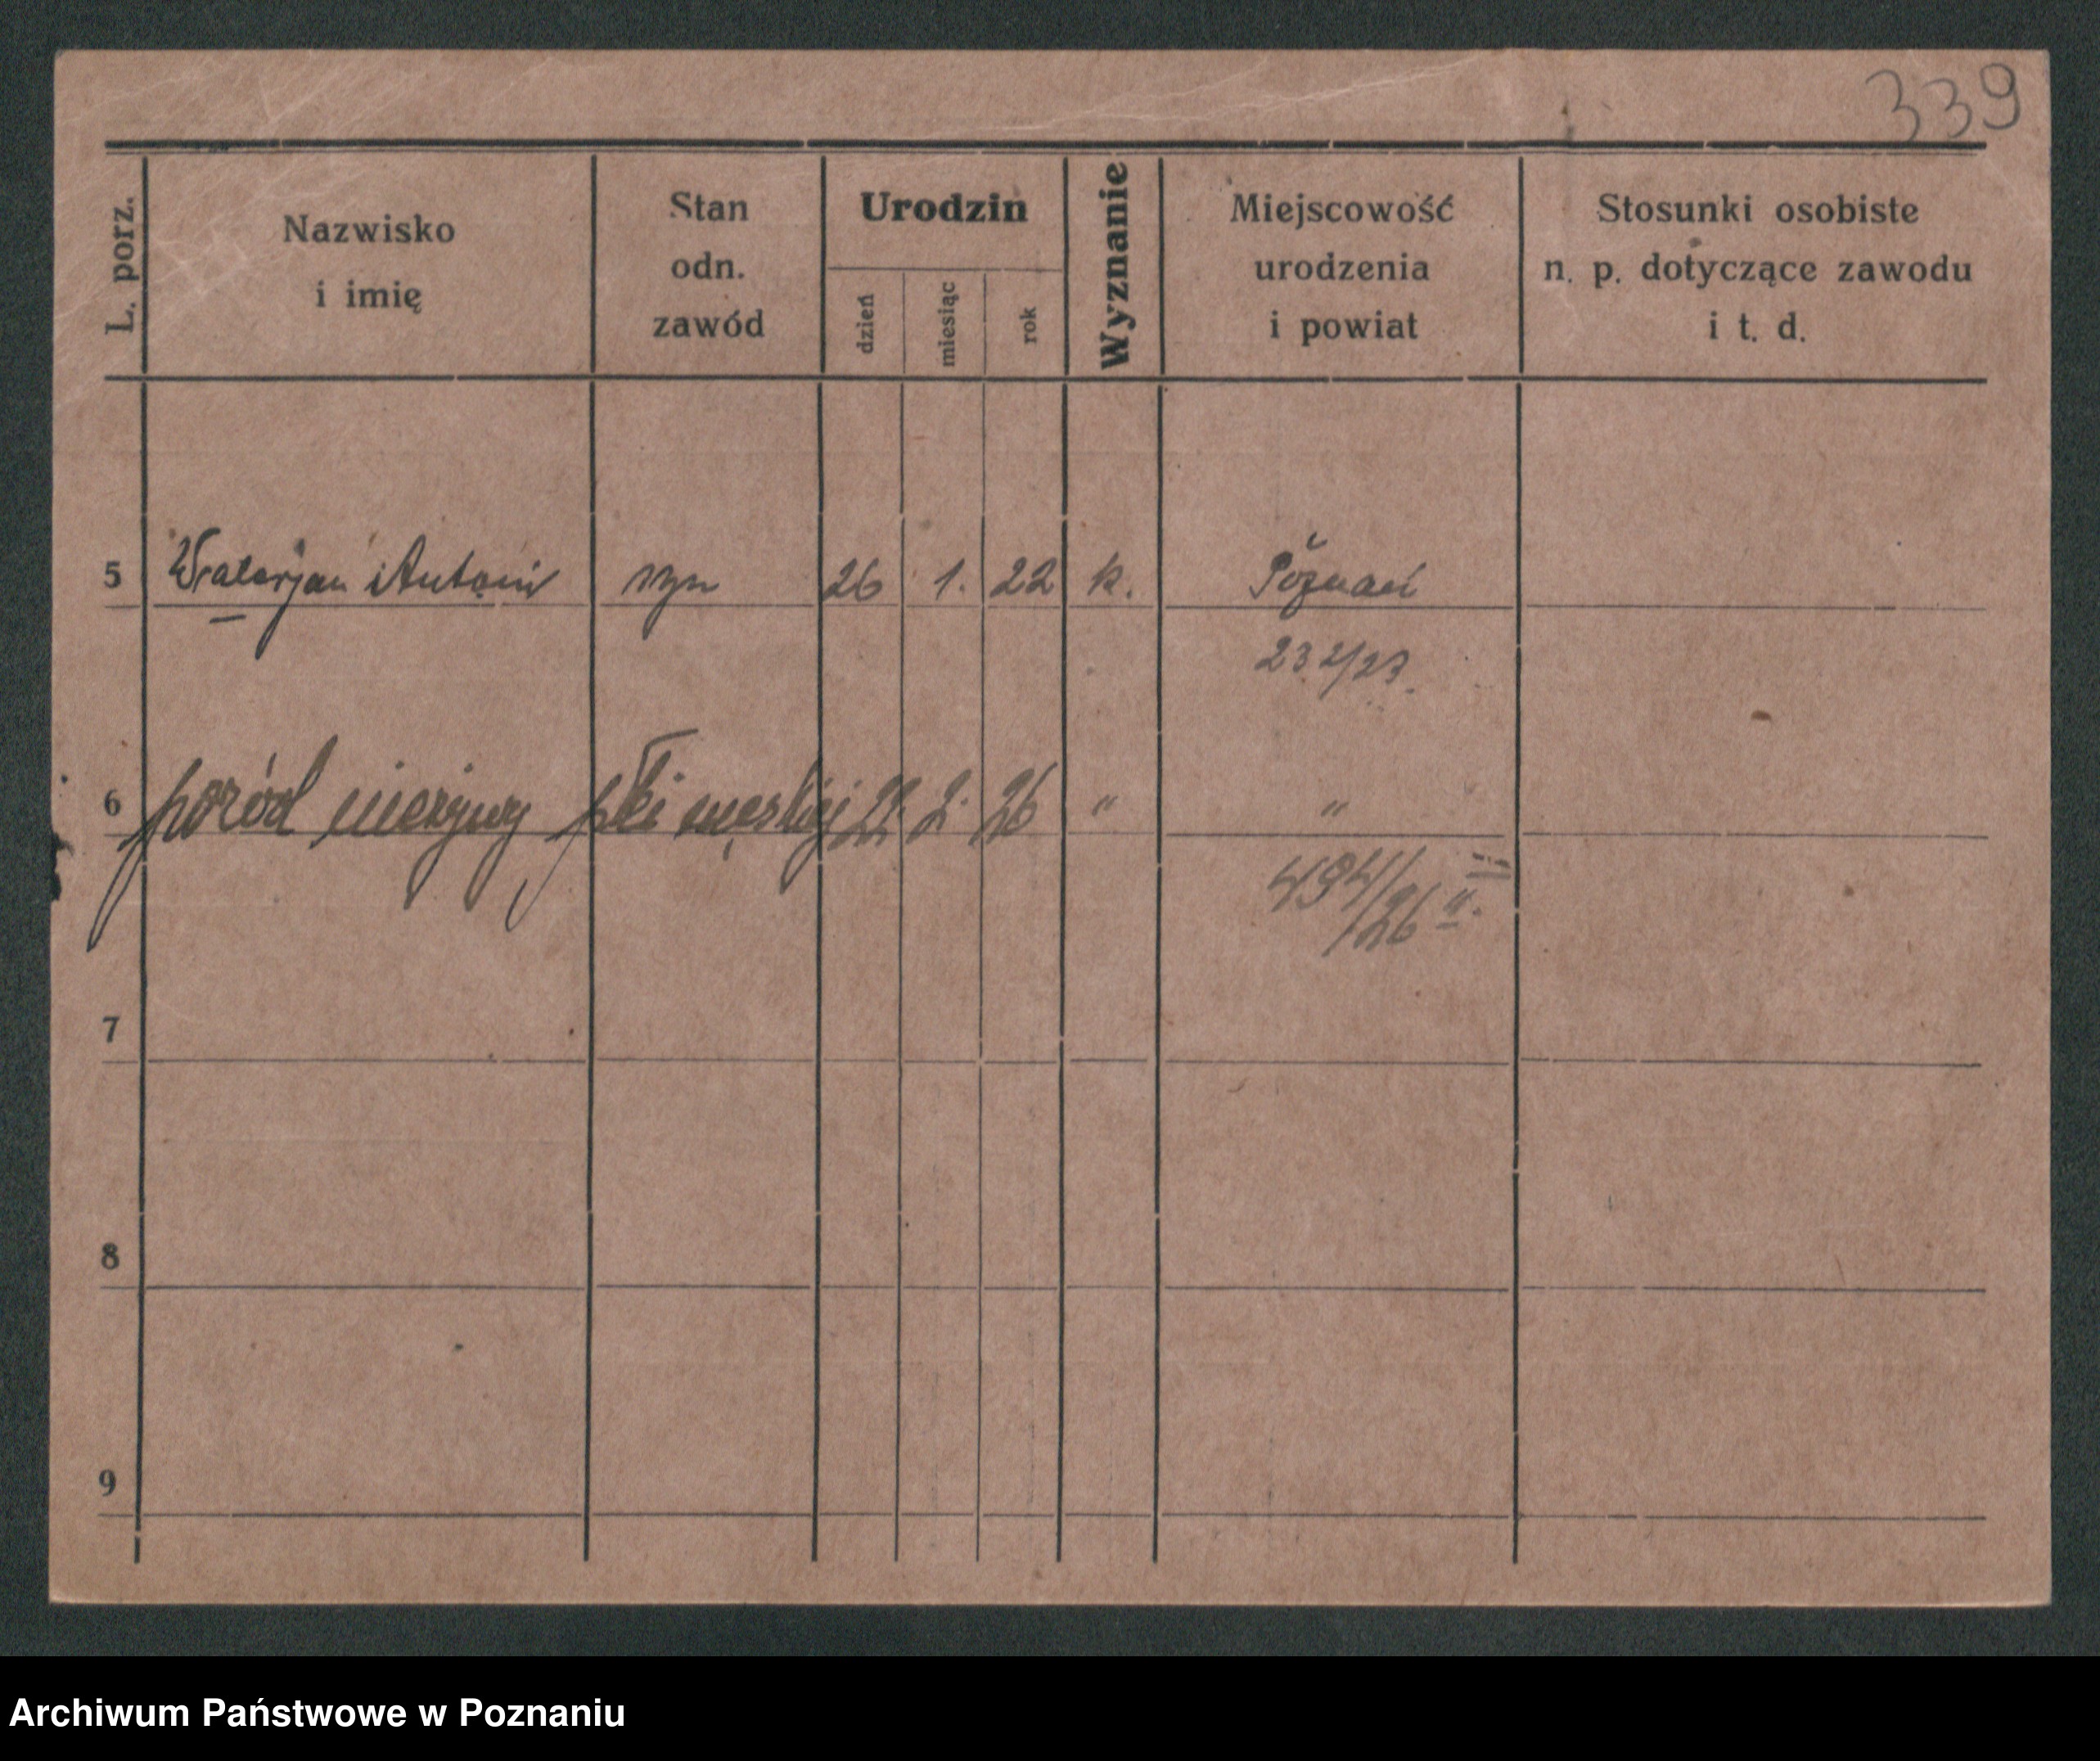 339
L. porz.
Nazwisko
i imię
Stan
odn.
zawód
Urodzin
dzień
miesiąc
rok
Wyznanie
Miejscowość
urodzenia
i powiat
Stosunki osobiste
n. p. dotyczące zawodu
i t. d.
5 Walerjan Antoni syn 26 1. 22 k. Poznań
6 poród nieżywy płci męskiej 2. 26 " "
494/26 II.
7
8
9
Archiwum Państwowe w Poznaniu